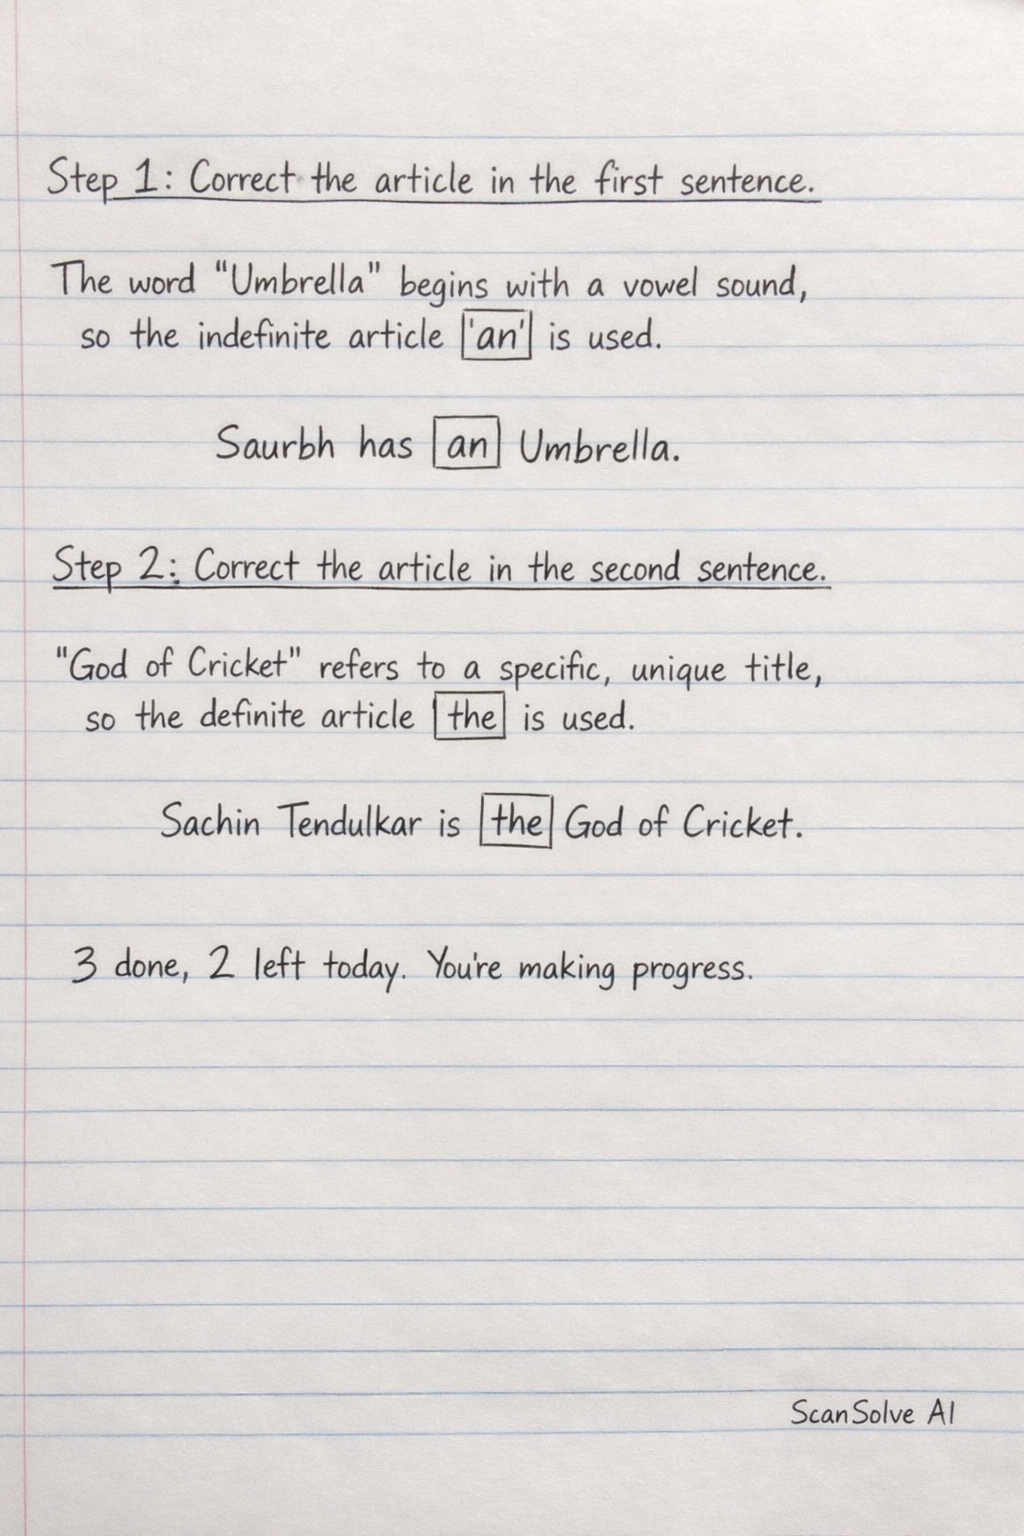 Step 1: Correct the article in the first sentence.
The word "Umbrella" begins with a vowel sound,
so the indefinite article 'an' is used.
Saurbh has an Umbrella.
Step 2: Correct the article in the second sentence.
"God of Cricket" refers to a specific, unique title,
so the definite article the is used.
Sachin Tendulkar is the God of Cricket.
3 done, 2 left today. You're making progress.
ScanSolve AI